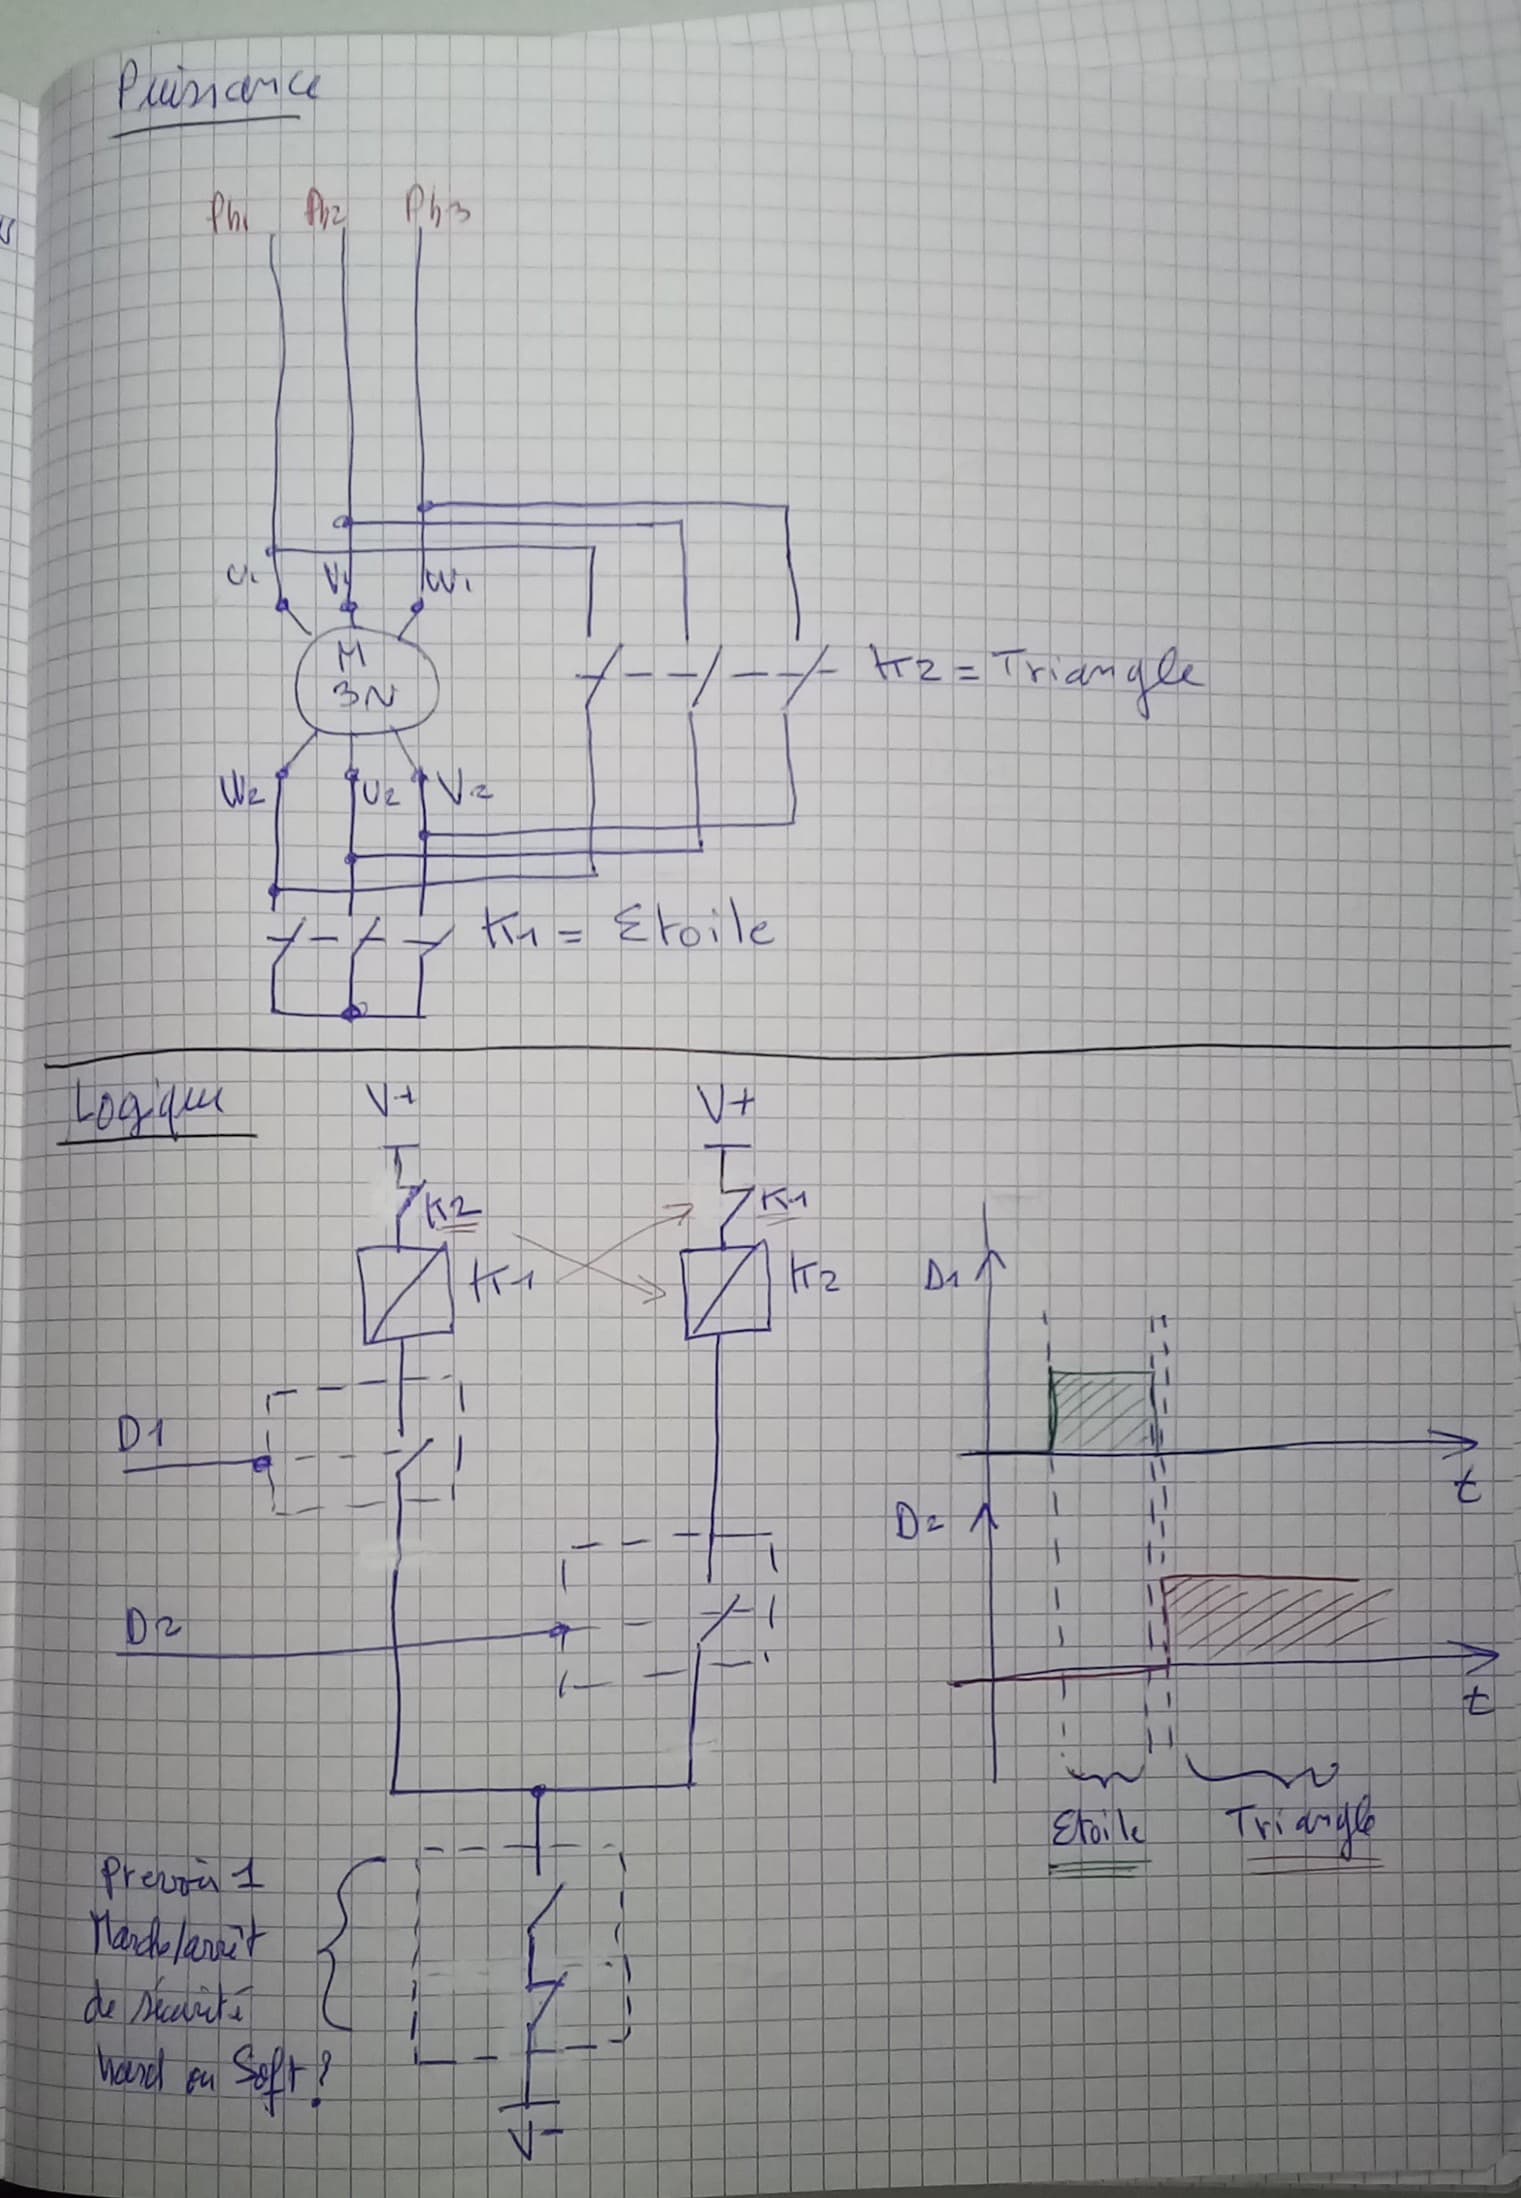 Puissance
Ph1 Ph2 Ph3
U1 V1 W1
M
3~
K2 = Triangle
W2 U2 V2
K1 = Etoile
Logique
V+ V+
K2 K1
K1 K2
D1
D1
t
D2
D2
t
Etoile Triangle
Prevoir 1
Marche/arrêt
de sécurité
hard ou Soft?
V-